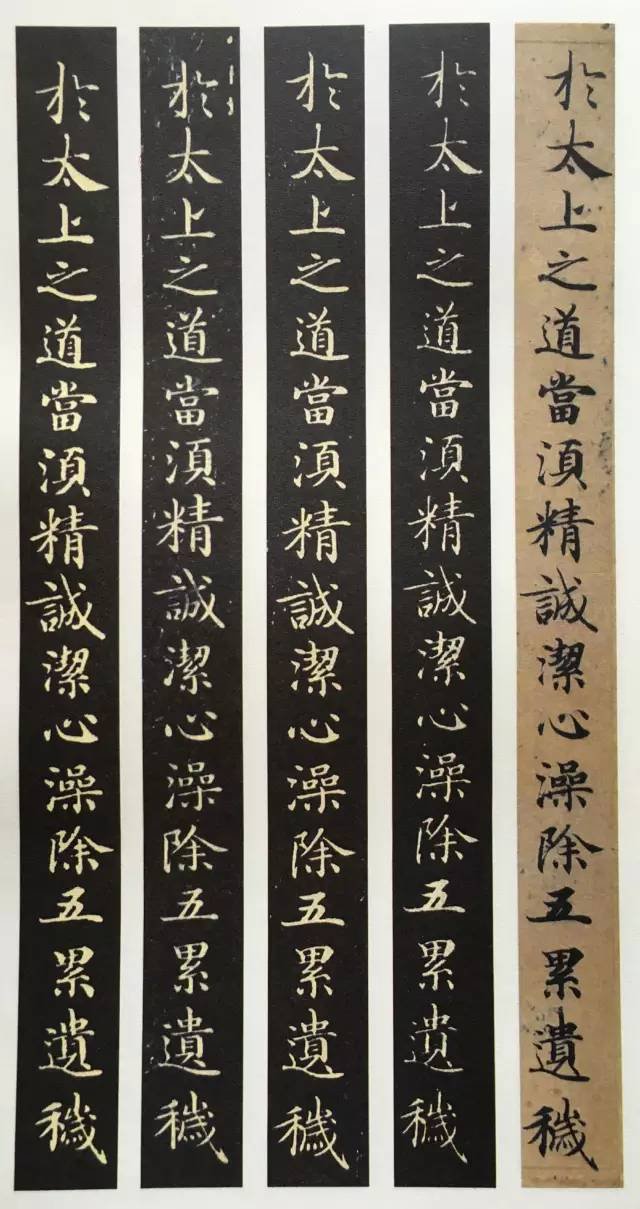 於太上之道當須精誠潔心澡除五累遺穢
於太上之道當須精誠潔心澡除五累遺穢
於太上之道當須精誠潔心澡除五累遺穢
於太上之道當須精誠潔心澡除五累遺穢
於太上之道當須精誠潔心澡除五累遺穢